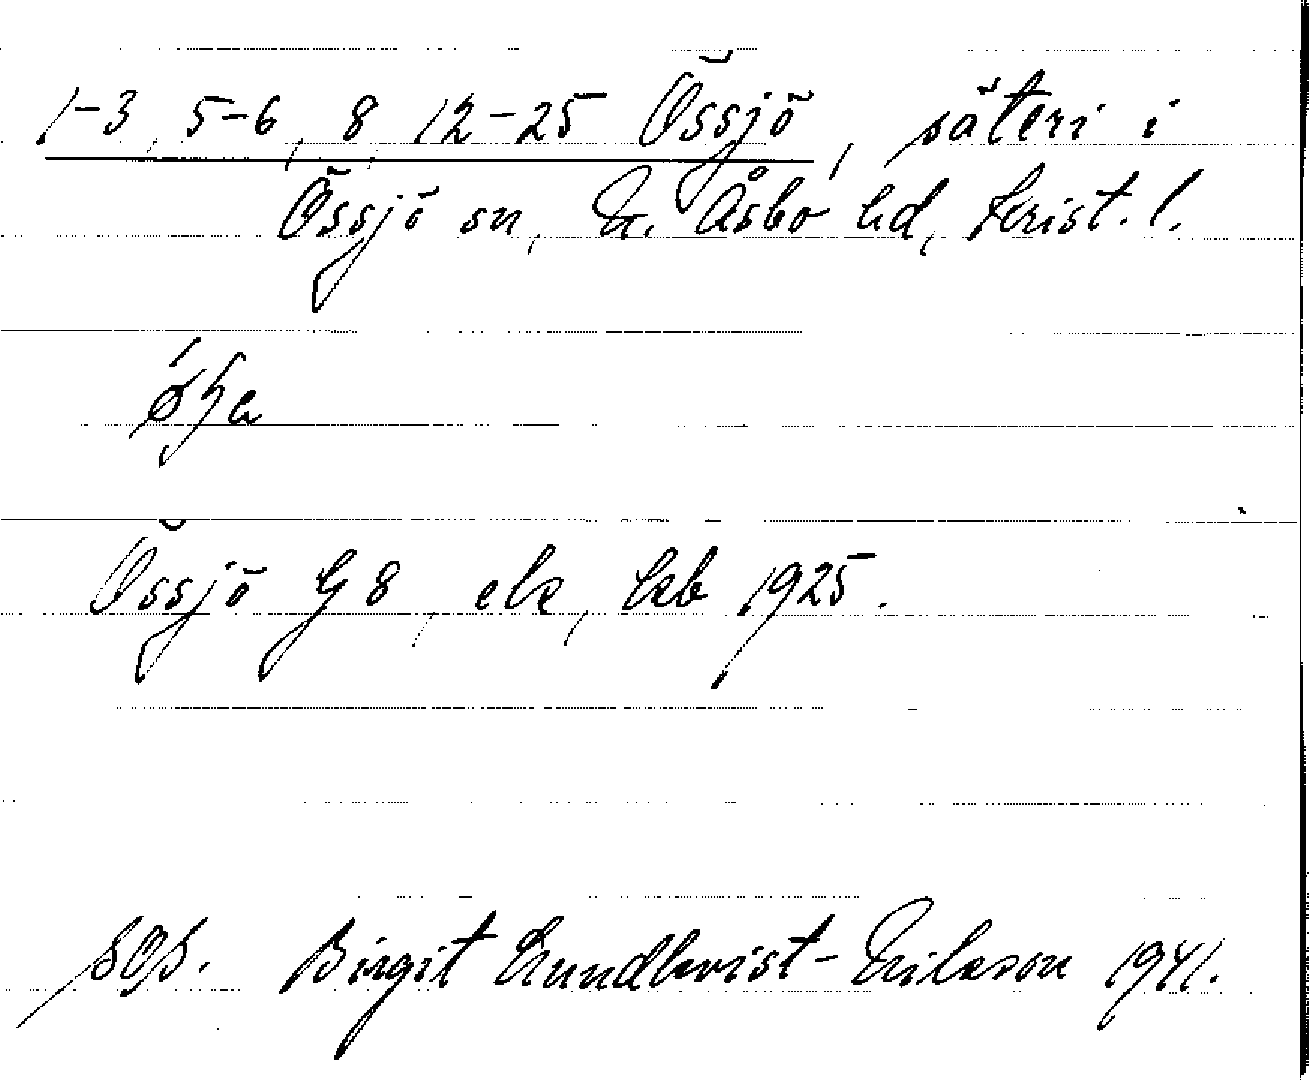 1-3, 5-6, 8, 12-25 Össjö, säteri i
Össjö sn, N. Åsbo hd, Krist. l.
Össjö G 8, ek, kb 1925.
SOS. Birgit Lundkvist-Nilsson 1941.